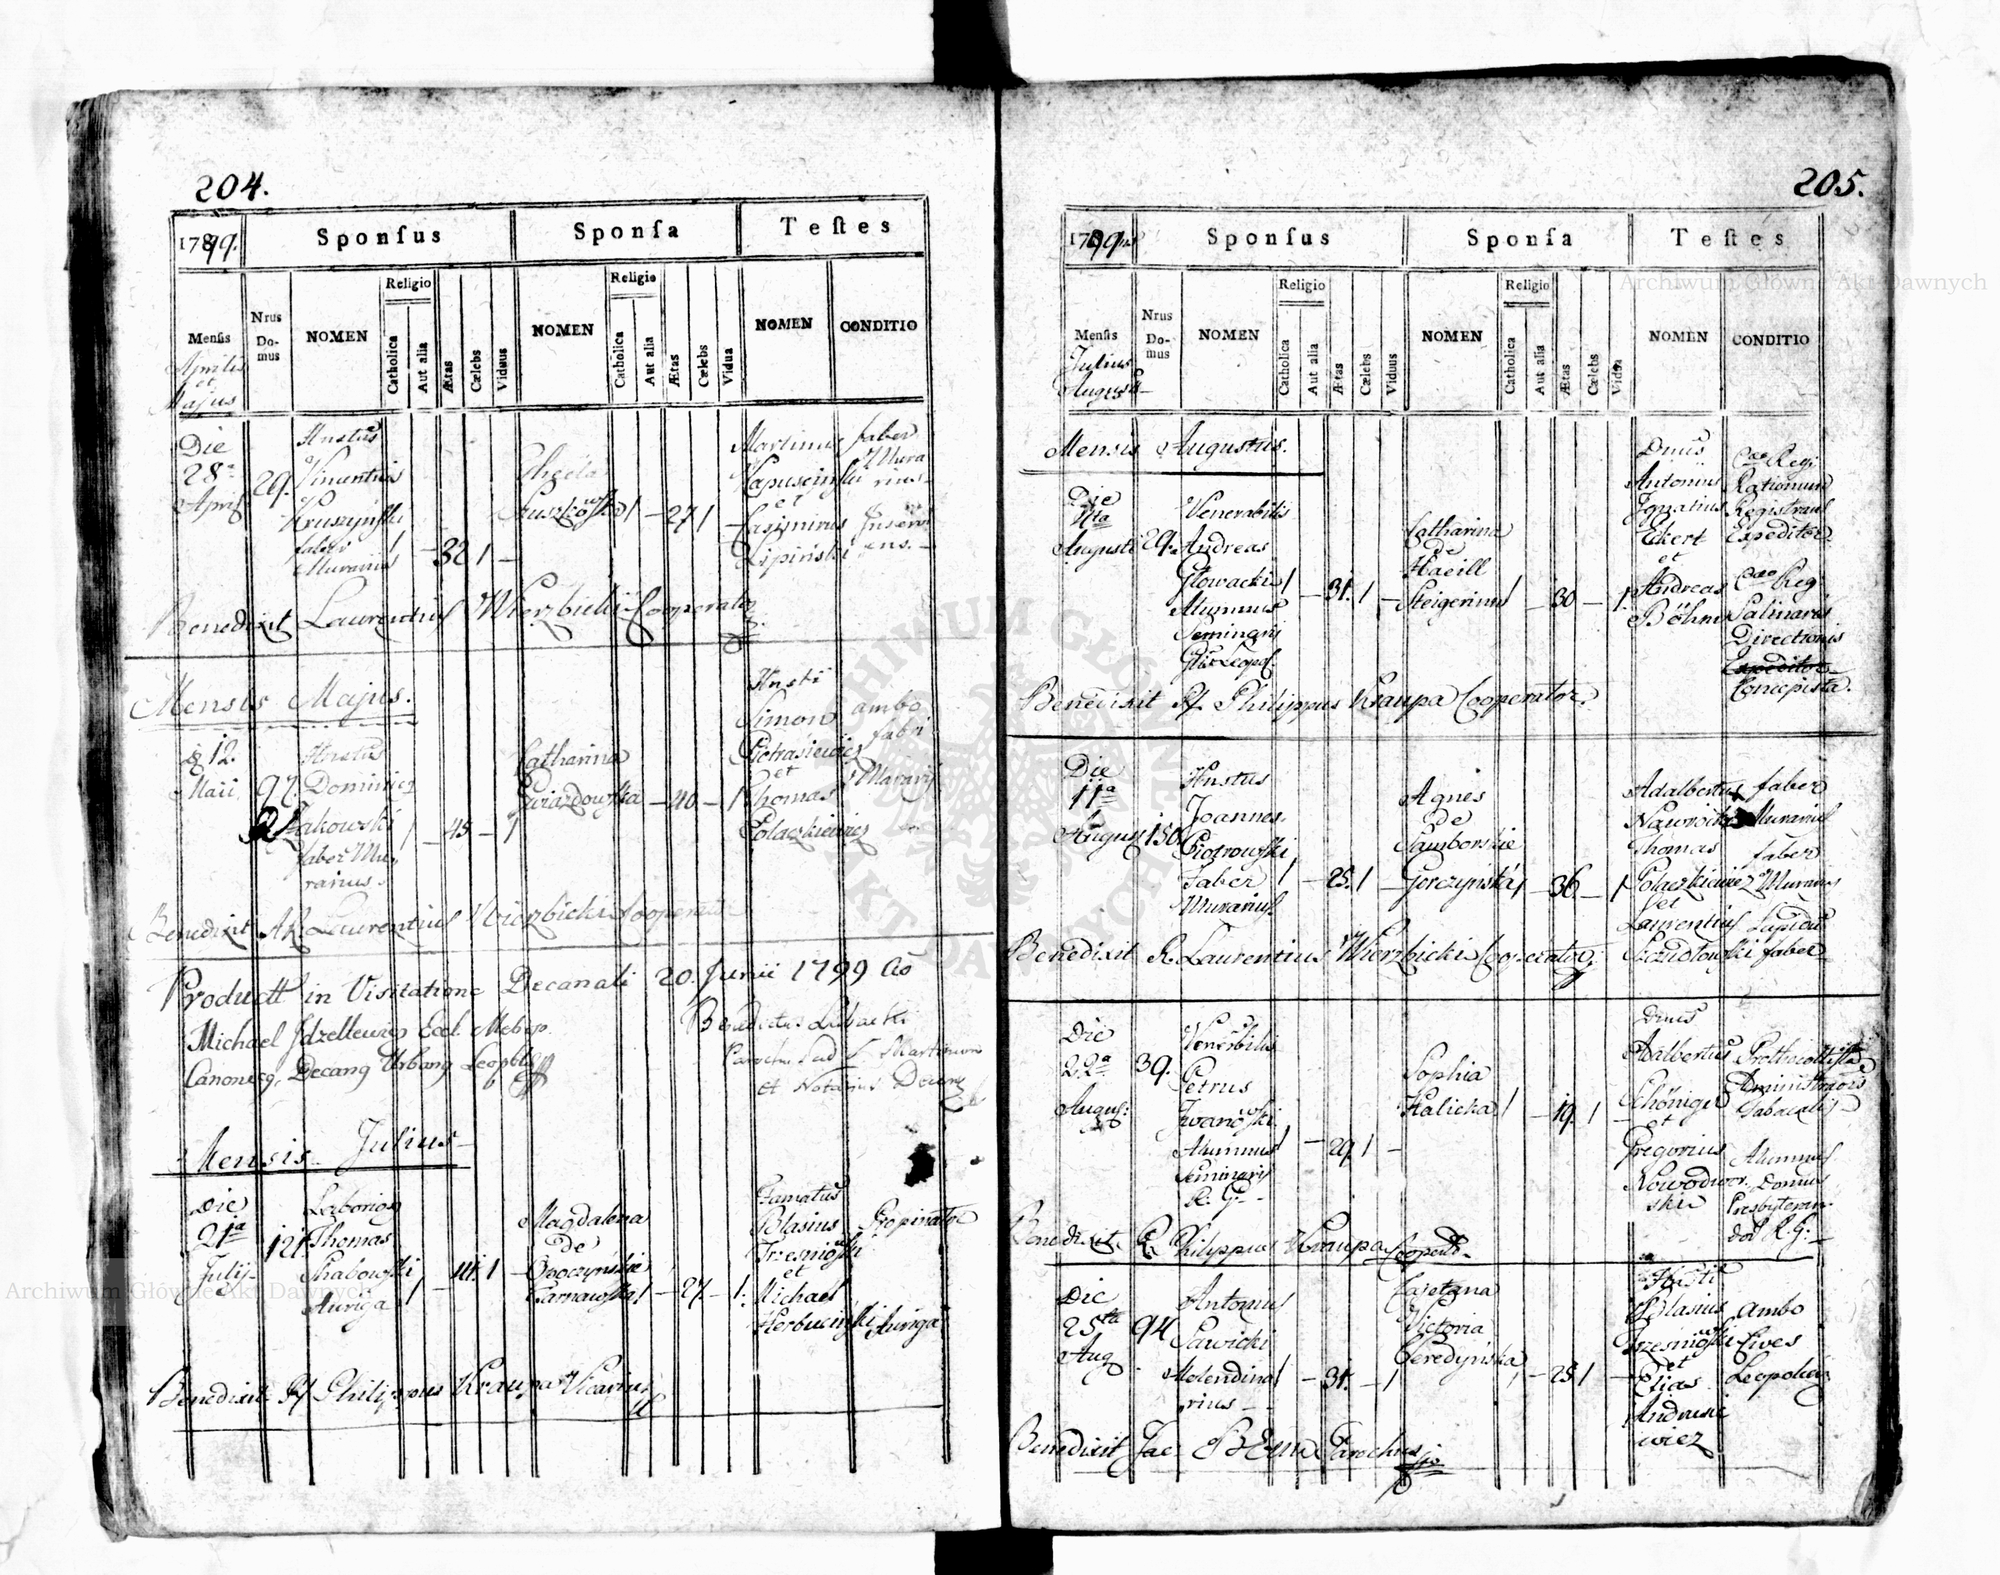 204.
1799.
Sponſus
Sponſa
Teſtes
Mensis
Aprilis
et
Majus
Nrus
Do-
mus
NOMEN
Religio
Catholica
Aut alia
Ætas
Cælebs
Viduus
NOMEN
Religio
Catholica
Aut alia
Ætas
Cælebs
Vidua
NOMEN
CONDITIO
Die
28a
April
29.
Hnstus
Vincentius
Kruszyński
faber
Murarius
1 – 32 1 –
Thecla
Kuszkowska 1 – 27 1
Martinus
Kapusciński
et
Casimirus
Lipiński
faber
Mura
rius
Inservi
ens.
Benedixit Laurentius Wierzbicki Cooperator
Mensis Majus.
d 12.
Maii
97.
Hnstus
Dominicus
Zakowski
faber Mu-
rarius.
1 – 45 – 1
Catharina
Gwiazdowska – 40 – 1
Hnsti
Simon
Pietrasiewicz
et
Thomas
Polaczkiewicz
ambo
fabri
Murarij
Benedixit AR. Laurentius Wierzbicki Cooperator
Product in Visitatione Decanali 20. Junii 1799 Ao
Michael
Canonicq, Decang Urbang Leopol
Benedictus
Paroch. ad S. Martinum
et Notarius
Mensis Julius
Die
21a
Julij
121
Laborios
Thomas
Auriga
1 – 41. 1
Magdalena
de
Tarnawska 1 – 27 – 1.
Famatus
Blasius
Trzesniowski
et
Michael
Propinator
Auriga
Benedixit Philippus Kraupa Vicarius
205.
1799
Sponſus
Sponſa
Teſtes
Mensis
Julius
August
Nrus
Do-
mus
NOMEN
Religio
Catholica
Aut alia
Ætas
Cælebs
Viduus
NOMEN
Religio
Catholica
Aut alia
Ætas
Cælebs
Vidua
NOMEN
CONDITIO
Mensis Augustus.
Die
Augusti
29.
Venerabilis
Andreas
Glowacki
Alumnus
Seminarij
1 – 31. 1 –
Catharina
de
Haeill
Steigerin 1 – 30 – 1.
Dnus
Antonius
Ignatius
Ekert
et
Andreas
Böhm
Cao Reg:
Rationum
Registrans
Expeditor
Cao Reg:
Salinaris
Directionis
Concepista.
Benedixit Philippus Kraupa Cooperator.
Die
11a
August
150
Hnstus
Joannes
Piotrowski
Faber
Murarius
1 – 25. 1
Agnes
de
Samborskie
Gorczyńska 1 – 36. – 1
Adalbertus
Nawrocki
Thomas
Polaczkiewicz
et
Laurentius
Szczudlowski
faber
Murarius
faber
Murarius
faber
Benedixit R. Laurentius Wierzbicki Cooperator.
Die
22a
August:
39.
Venerbilis
Petrus
Iwanowski
Alumnus
Seminarij
R. G.
– 29 1 –
Sophia
Halicka 1 – 19. 1
Dnus
Adalbertus
Schöniger
et
Gregorius
Nowodwor-
skii
Administraois
Tabacalis
Alumnus
Domus
Presbyteran-
dor R. G.
Benedixit R. Philippus Kraupa Cooperat.
Die
25ta
Aug
94
Antonius
Sawicki
Molendina
rius –
1 – 31. – 1
Cajetana
Victoria
Ceredyńska
1 – 25 1
Hnsti
Blasius
Trzesniowski
et
Elias
Andrusie
wicz
ambo
Cives
Leopolien
Benedixit Jac: BEm Parochus
Archiwum Główne Akt Dawnych
Archiwum Główne Akt Dawnych
ARCHIWUM GŁÓWNE AKT DAWNYCH